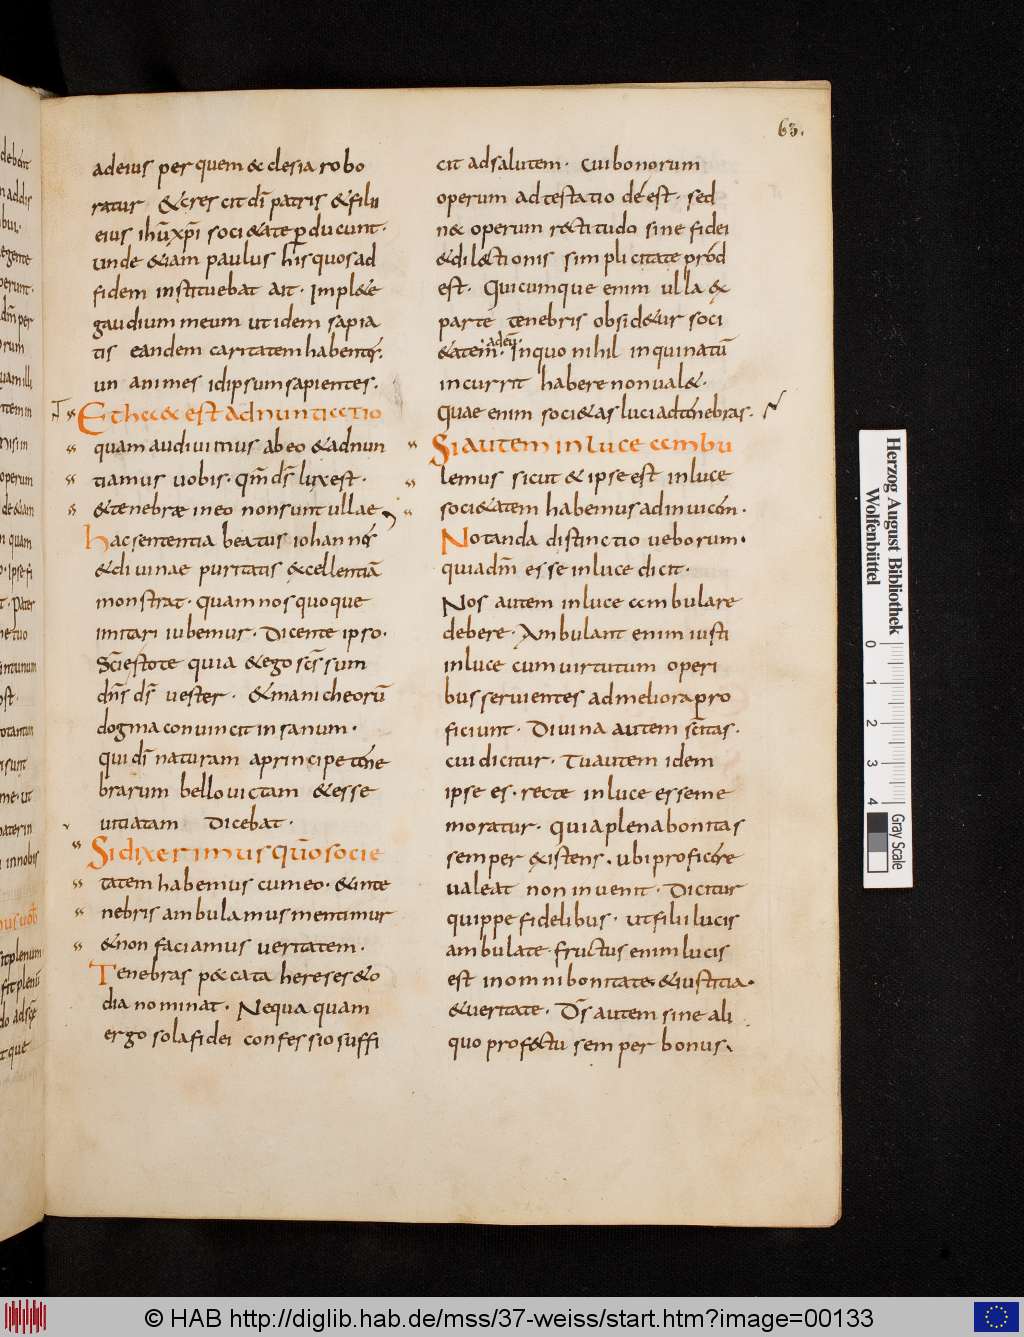 63.
adeius per quem & clesia robo
ratur &cres cit dī patris &filii
eius ihū xp̄i soci&ate ꝑducunt·
unde &iam paulus his quos ad
fidem instituebat ait· Impl&e
gaudium meum ut idem sapia
tis eandem caritatem habentes.
un animes id ipsum sapientes.
Et haec est adnuntiatio
quam audiuimus ab eo &adnun
tiamus uobis· qm̄ ds̄ lux est·
&tenebrae in eo non sunt ullae
hac sententia beatus iohannes
&diuinae puritatis excellentiā
monstrat· quam nos quoque
imitari iubemur· Dicente ipso·
Sc̄i estote quia &ego sc̄s sum
dn̄s ds̄ uester· &manicheorū
dogma conuincit insanum·
qui dī naturam a principe tene
brarum bello uictam &esse
uitiatam Dicebat·
Si dixerimus quō socie
tatem habemus cum eo· &inte
nebris ambulamus mentimur
&non faciamus ueritatem·
Tenebras p&cata hereses &o
dia nominat· Nequaquam
ergo sola fidei confessio suffi
cit ad salutem· Cui bonorum
operum adtestatio deest· sed
n& operum r&titudo sine fidei
&dil&tionis simplicitate prod
est· Quicumque enim ulla ex
parte tenebris obsid&ur soci
·adeū·
&atem· In quo nihil inquinatū
incurrit habere non ual&·
Quae enim soci&as luci ad tenebras·
Si autem in luce ambu
lemus sicut & ipse est in luce
soci&atem habemus ad inuicem·
Notanda distinctio ueborum·
qui adm̄ esse in luce dicit·
Nos autem in luce ambulare
debere· Ambulant enim iusti
in luce cum uirtutum operi
bus seruientes ad meliora pro
ficiunt· Diuina autem sc̄itas·
cui dicitur· Tu autem idem
ipse es· recte in luce esse me
moratur· quia plena bonitas
semper existens· ubi proficere
ualeat non inuenit· Dicitur
quippe fidelibus· ut filii lucis
ambulate· fructus enim lucis
est in omni bonitate· &iustitia·
&ueritate· Ds̄ autem sine ali
quo prof&tu semper bonus·
Herzog August Bibliothek
Wolfenbüttel
0 1 2 3 4
Gray Scale
© HAB http://diglib.hab.de/mss/37-weiss/start.htm?image=00133